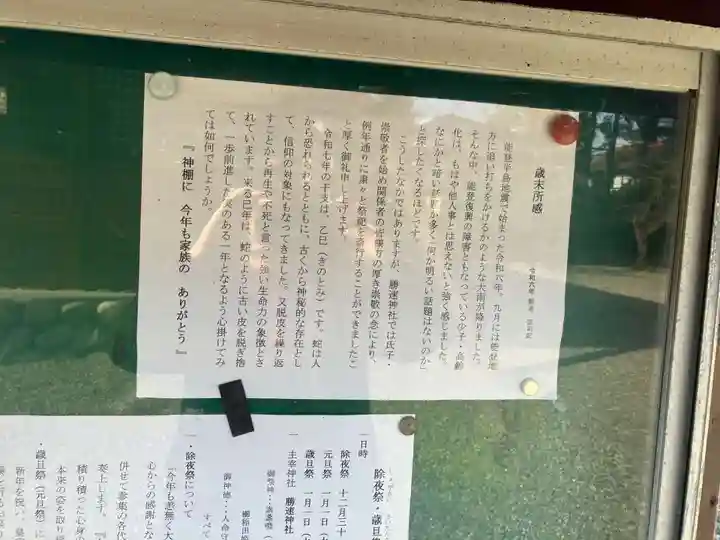 歳末所感
令和六年
能登半島地震で始まった令和六年、九月には能登地
方に追い打ちをかけるかのような大雨が降りました。
そんな中、能登復興の障害ともなっている少子・高齢
化は、もはや他人事とは思えないと強く感じました。
なにかと暗い話題が多く「何か明るい話題はないのか」
と探したくなるほどです。
こうしたなかではありますが、勝速神社では氏子・
崇敬者を始め関係者の皆様方の厚き崇敬の念により、
例年通りに粛々と祭祀を斎行することができましたこ
と厚く御礼申し上げます。
令和七年の干支は、乙巳（きのとみ）です。蛇は人
から恐れられるとともに、古くから神秘的な存在とし
て、信仰の対象にもなってきました。又脱皮を繰り返
すことから再生や不死と言った強い生命力の象徴とさ
れています。来る巳年は、蛇のように古い皮を脱ぎ捨
て、一歩前進した実のある一年となるよう心掛けてみ
ては如何でしょうか。
『神棚に 今年も家族の ありがとう』
除夜祭・歳旦
日時
除夜祭 十二月三十
元旦祭 一月一日（
歳旦祭 一月一日（
主宰神社 勝速神社
すべて
・除夜祭について
「今年も恙無く大
心からの感謝とな
併せて参集の各代
奏上します。
積り積った心身の
本来の姿を取り戻
・歳旦祭（元旦祭）に
新年を祝い、皇